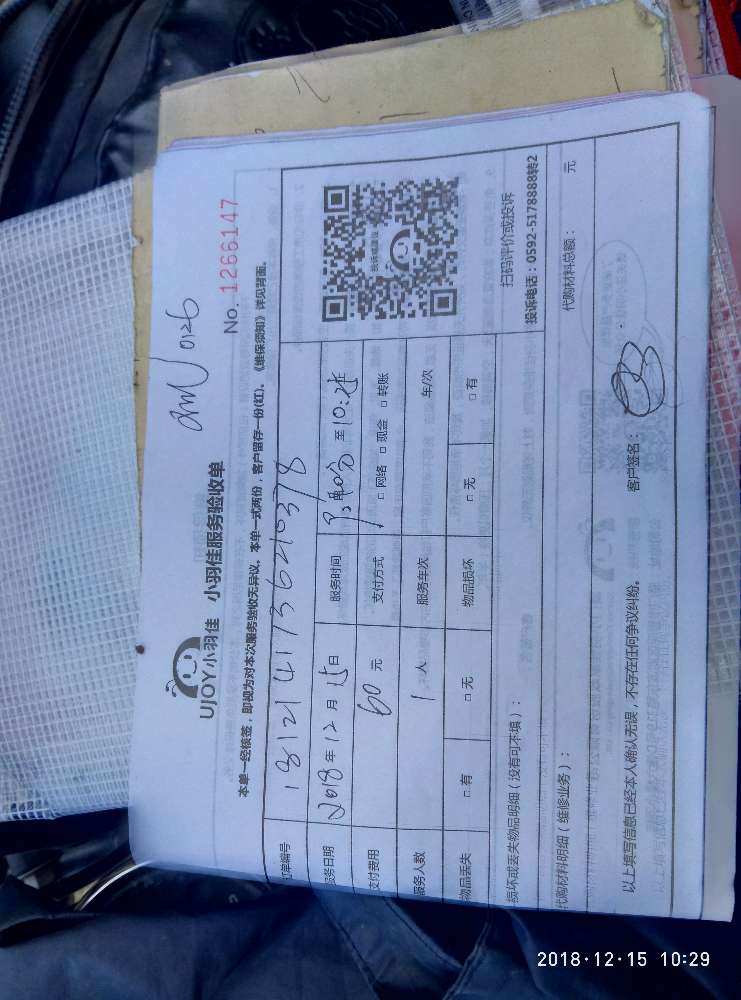 UJOY小羽佳 小羽佳服务验收单
0126
No. 1266147
本单一经核签，即视为对本次服务验收无异议。本单一式两份，客户留存一份(红)。《维保须知》详见背面。
订单编号 1812141736210378
服务日期 2018年12月15日 服务时间 至10:
支付费用 60 元 支付方式 □ 网络 □ 现金 □ 转账
服务人数 1 人 服务车次 车/次
物品丢失 □ 有 □ 无 物品损坏 □ 无 □ 有
扫码评价或投诉
投诉电话：0592-5178888转2
损坏或丢失物品明细（没有可不填）：
代购材料明细（维修业务）： 代购材料总额： 元
以上填写信息已经本人确认无误，不存在任何争议纠纷。 客户签名：
2018·12·15 10:29